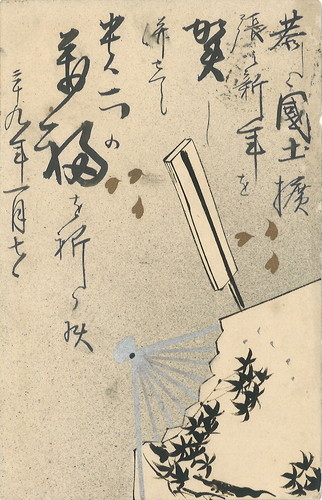 若々國土擴
張之新年を
賀し
併せて
貴公の
萬福を祈り候
三十九年一月七日